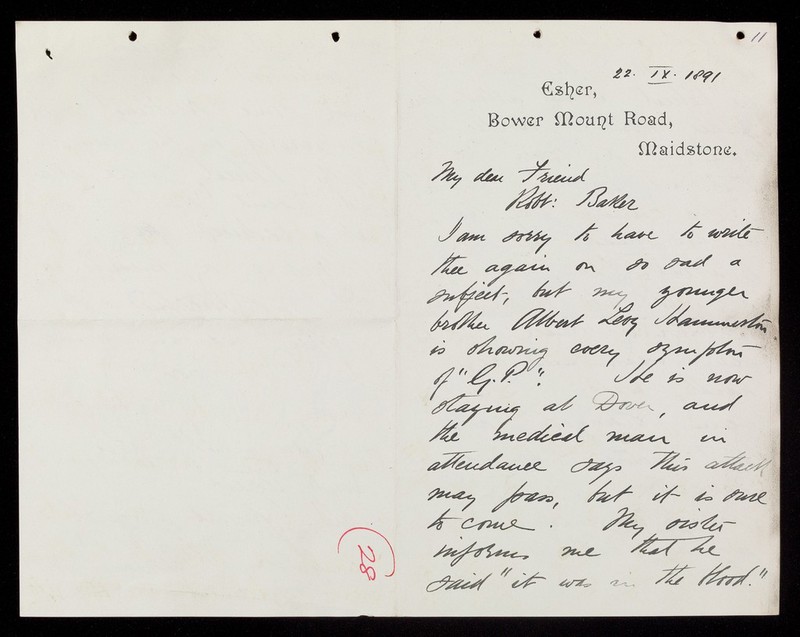 11
22. IX. 1891
Esher,
Bower Mount Road,
Maidstone.
My dear Friend
Robt: Baker
I am sorry to have to write
thee again on so sad a
subject, but my younger
brother Albert Levy Hammerston
is showing every symptom
of "G.P.". He is now
staying at Dover, and
the medical man in
attendance says this attack
may pass, but it is sure
to come. My sister
informs me that he
said "it was in the blood."
28